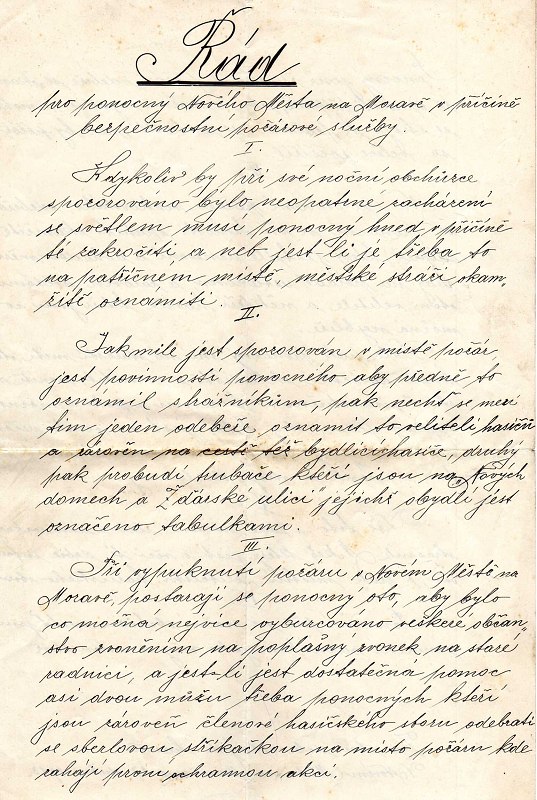 Řád
pro ponocný Nového Města na Moravě v příčině
bezpečnostní požárové služby.
I.
Kdykoliv by při své noční obchůzce
spozorováno bylo neopatrné zacházení
se světlem musí ponocný hned v příčině
té zakročiti, a neb jest-li je třeba to
na patřičném místě, městské stráži okam„
žitě oznámiti.
II.
Jakmile jest spozorován v místě požár,
jest povinností ponocného aby předně to
oznámil strážníkům, pak nechť se mezi
tím jeden odebéře oznamit to veliteli hasičů
a zároveň na cestě též bydlících hasiče, druhý
pak probudí trubače kteří jsou na Nových
domech a Žďárské ulici jejichž obydlí jest
označeno tabulkami.
III.
Při vypuknutí požáru v Novém Městě na
Moravě, postarají se ponocný oto, aby bylo
co možna nejvíce vyburcováno veškeré občan„
stvo zvoněním na poplašný zvonek na staré
radnici, a jest-li jest dostatečná pomoc
asi dvou mužu třeba ponocných kteří
jsou zároveň členové hasičského sboru odebrati
se sberlovou stříkačkou na místo požáru kde
zahájí první ochrannou akci.